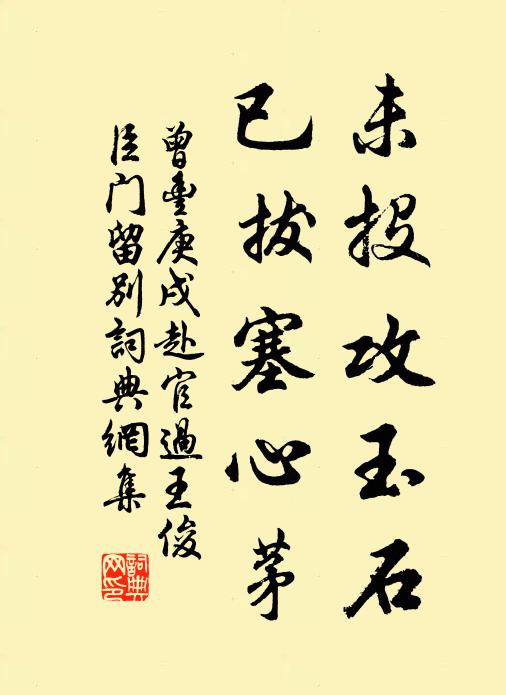 未投攻玉石
已拔塞心茅
曾丰庚戌赴官過王俊
臣门留别詞典網集
詞典網印